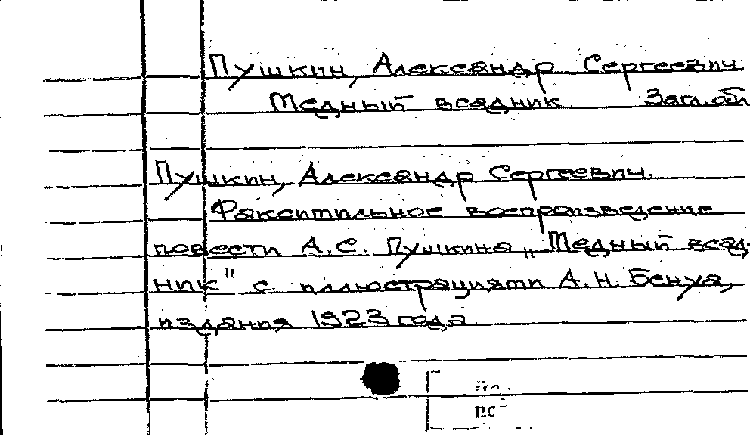 Пушкин, Александр Сергеевич
Медный всадник Загл. об
Пушкин, Александр Сергеевич.
Факсимильное воспроизведение
повести А.С. Пушкина „Медный всад-
ник" с иллюстрациями А.Н. Бенуа,
издания 1923 года